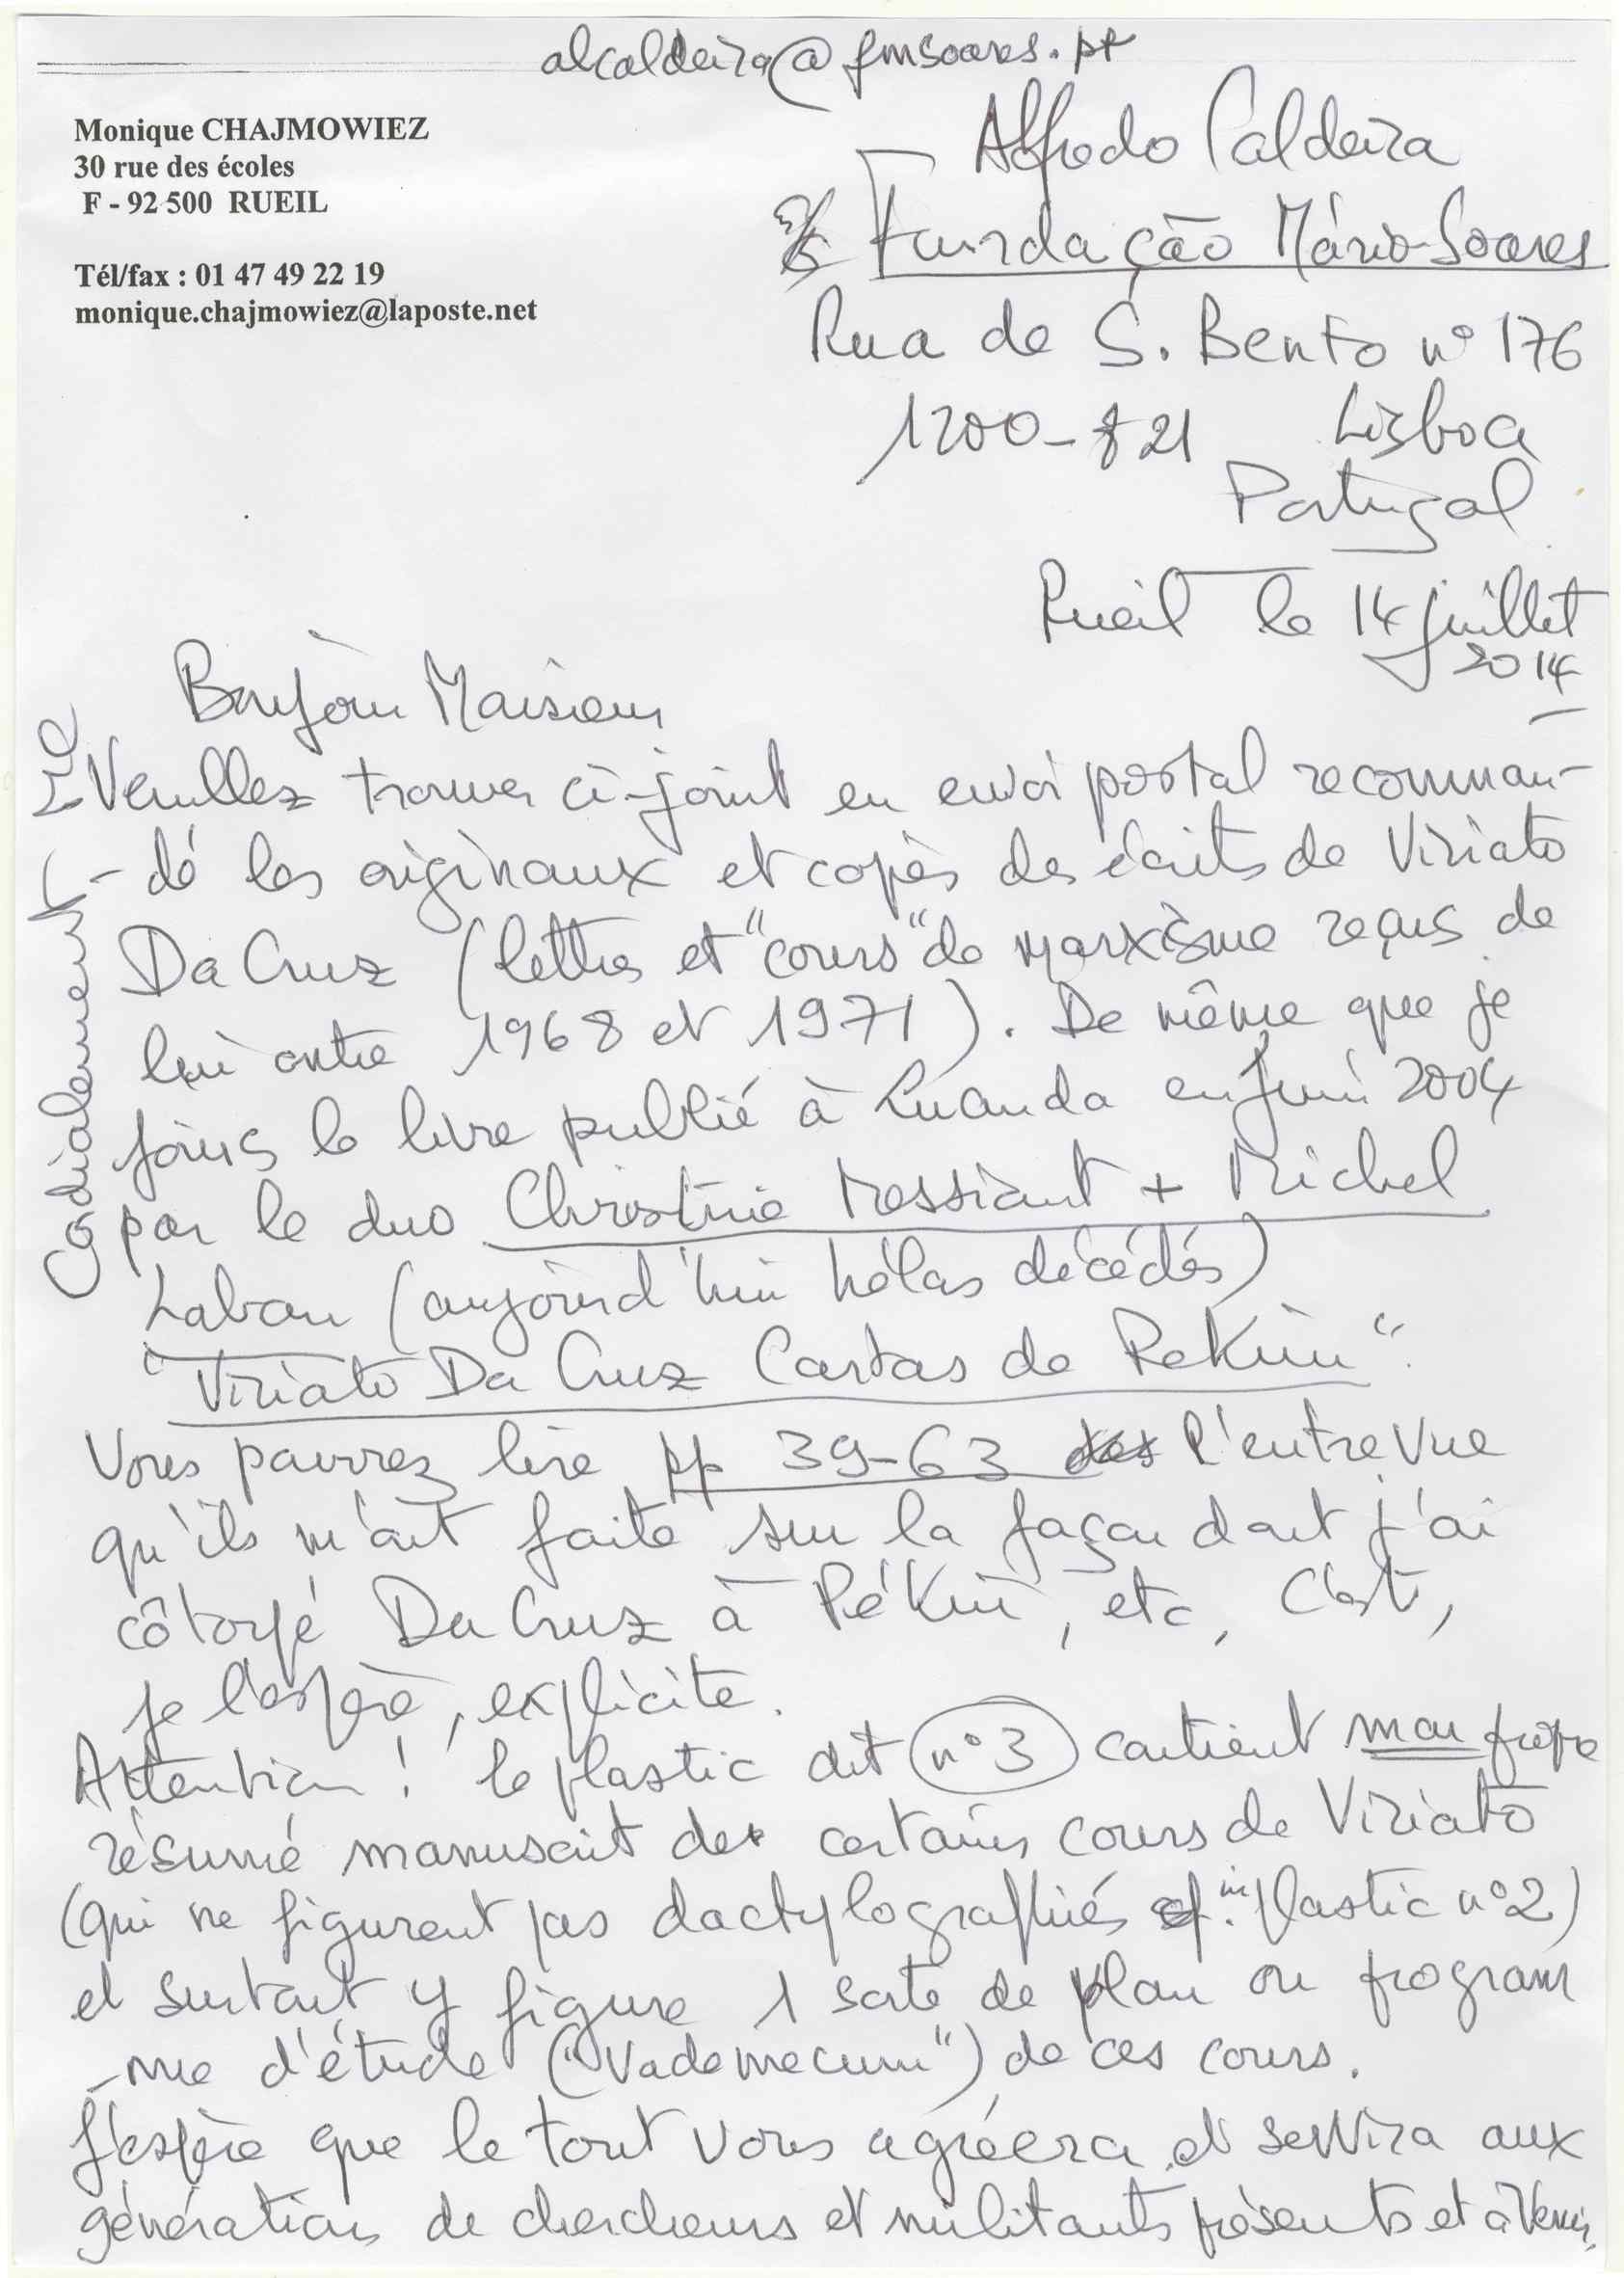 alcaldeira@fmsoares.pt
Monique CHAJMOWIEZ
30 rue des écoles
F - 92 500 RUEIL
Tél/fax : 01 47 49 22 19
monique.chajmowiez@laposte.net
Alfredo Caldeira
Fundação Mário Soares
Rua de S. Bento nº 176
1200-821 Lisboa
Portugal
Rueil le 14 juillet
2014
Bonjour Monsieur
Veuillez trouver ci-joint en envoi postal recomman-
-dé les originaux et copies des écrits de Viriato
Da Cruz (lettres et "cours" de marxisme reçus de
lui entre 1968 et 1971). De même que je
joins le livre publié à Luanda en juin 2004
par le duo Christine Messiant + Michel
Laban (aujourd'hui hélas décédés)
"Viriato Da Cruz Cartas de Pekin".
Vous pourrez lire pp 39-63 l'entrevue
qu'ils m'ont faite sur la façon dont j'ai
côtoyé Da Cruz à Pékin, etc, C'est,
je l'espère, explicite.
Attention ! le plastic dit n°3 contient mon propre
résumé manuscrit de certains cours de Viriato
(qui ne figurent pas dactylographiés cf. in plastic n°2)
et surtout y figure 1 sorte de plan ou program
-me d'étude ("Vademecum") de ces cours.
J'espère que le tout vous agréera et servira aux
générations de chercheurs et militants présents et à venir,
Cordialement